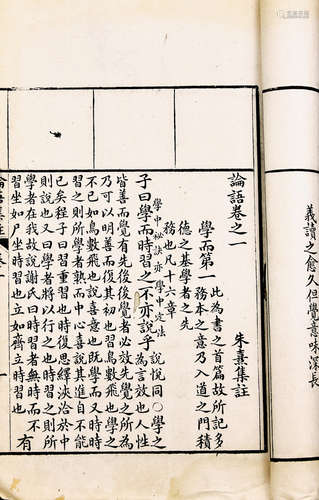 義讀之愈久但覺意味深長
論語卷之一
朱熹集註
學而第一 此為書之首篇故所記多
務本之意乃入道之門積
德之基學者之先
務也凡十六章
學中訣亦學中定法
子曰學而時習之不亦說乎 說悅同○學之為言效也人性
皆善而覺有先後後覺者必效先覺之所為
乃可以明善而復其初也習鳥數飛也學之
不已如鳥數飛也說喜意也既學而又時時
習之則所學者熟而中心喜說其進自不能
已矣程子曰習重習也時復思繹浹洽於中
則說也又曰學者將以行之也時習之則所
學者在我故說謝氏曰時習者無時而不
習坐如尸坐時習也立如齊立時習也 有
論語集註